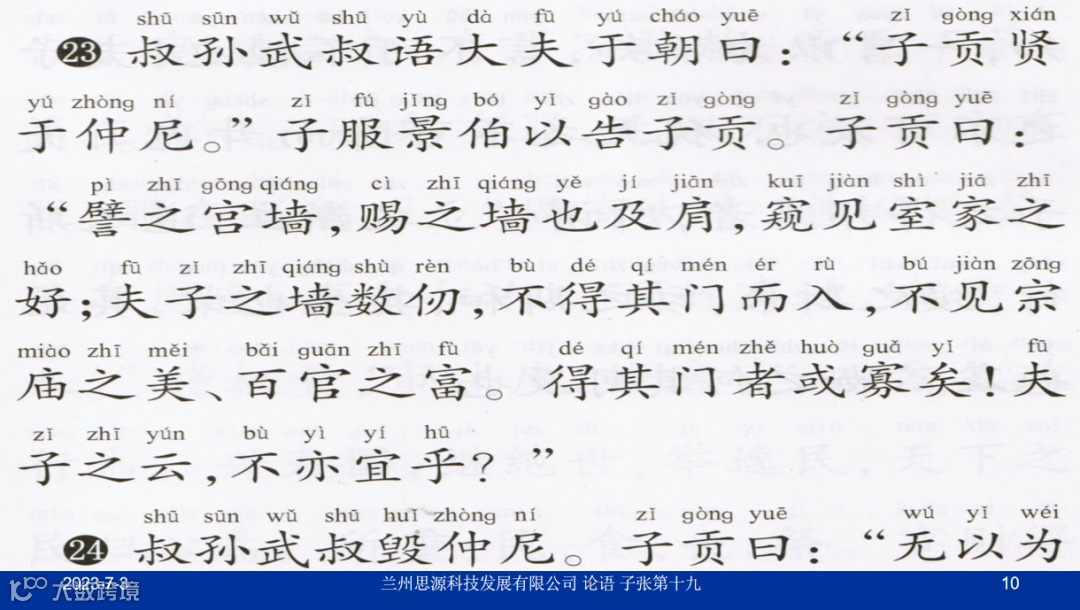 shū sūn wǔ shū yù dà fū yú cháo yuē zǐ gòng xián
㉓叔孙武叔语大夫于朝曰：“子贡贤
yú zhòng ní zǐ fú jǐng bó yǐ gào zǐ gòng zǐ gòng yuē
于仲尼。”子服景伯以告子贡。子贡曰：
pì zhī gōng qiáng cì zhī qiáng yě jí jiān kuī jiàn shì jiā zhī
“譬之宫墙，赐之墙也及肩，窥见室家之
hǎo fū zǐ zhī qiáng shù rèn bù dé qí mén ér rù bú jiàn zōng
好，夫子之墙数仞，不得其门而入，不见宗
miào zhī měi bǎi guān zhī fù dé qí mén zhě huò guǎ yǐ fū
庙之美、百官之富。得其门者或寡矣！夫
zǐ zhī yún bù yì yí hū
子之云，不亦宜乎？”
shū sūn wǔ shū huǐ zhòng ní zǐ gòng yuē wú yǐ wéi
㉔叔孙武叔毁仲尼。子贡曰：“无以为
2023-7-3 兰州思源科技发展有限公司 论语 子张第十九 10
大数跨境